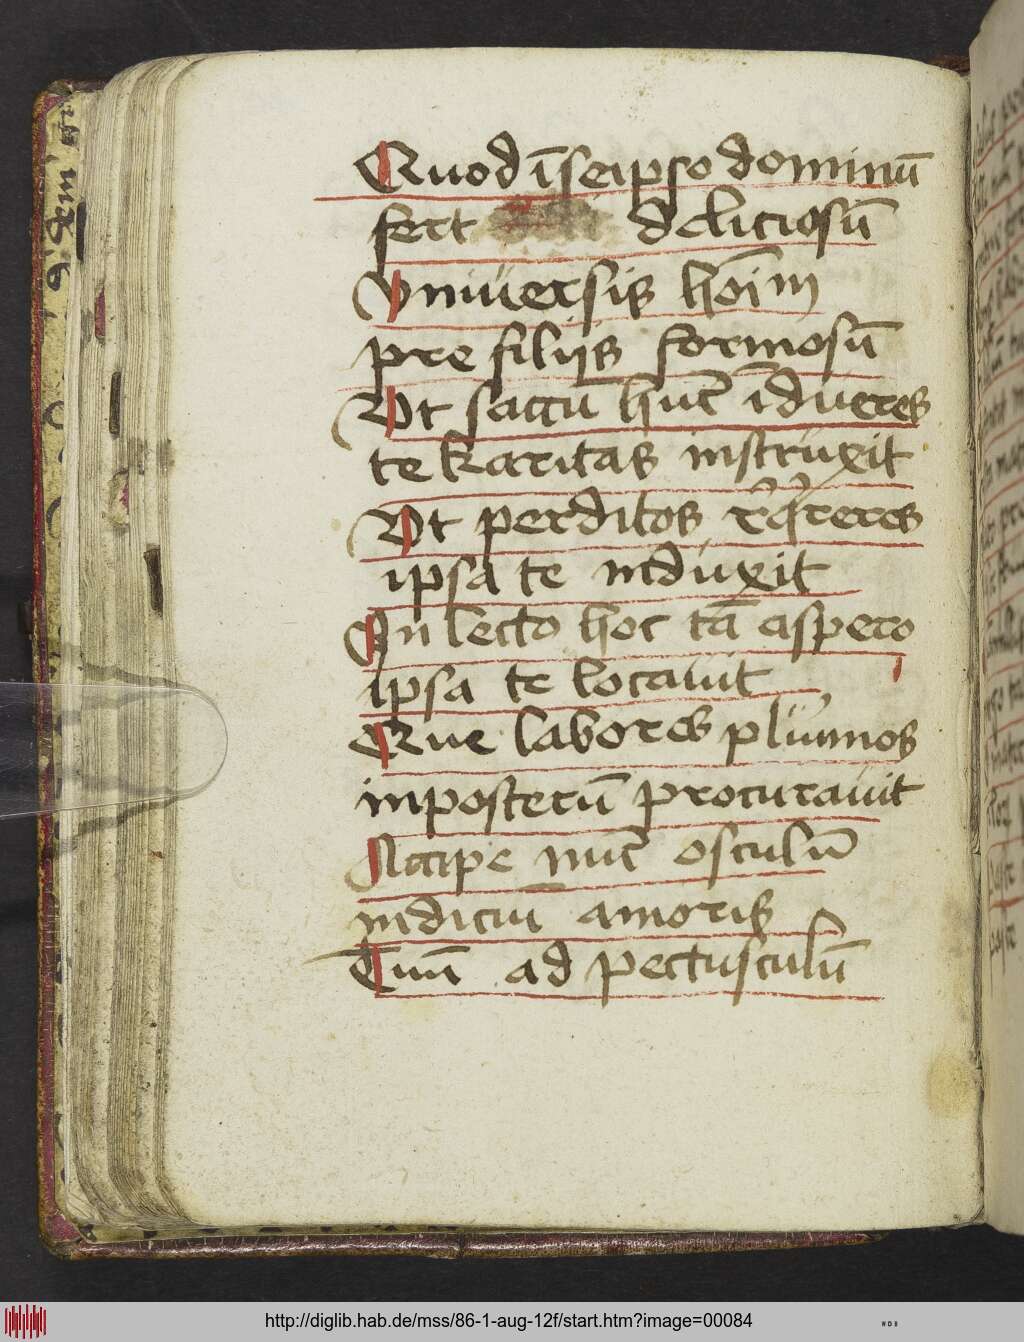 Quod ī seipso dominū
fert deliciosū
Vniuersis hoīm
pre filijs formosū
Vt saccū hūc īdueres
te karitas instruxit
Vt perditos rͤqͥreres
ipsa te induxit
In lecto hoc tā aspero
ipsa te locauit
Que labores plūimos
inposterū procurauit
Accipe nūc osculū
indiciū amoris
Tuū ad pectusculū
http://diglib.hab.de/mss/86-1-aug-12f/start.htm?image=00084